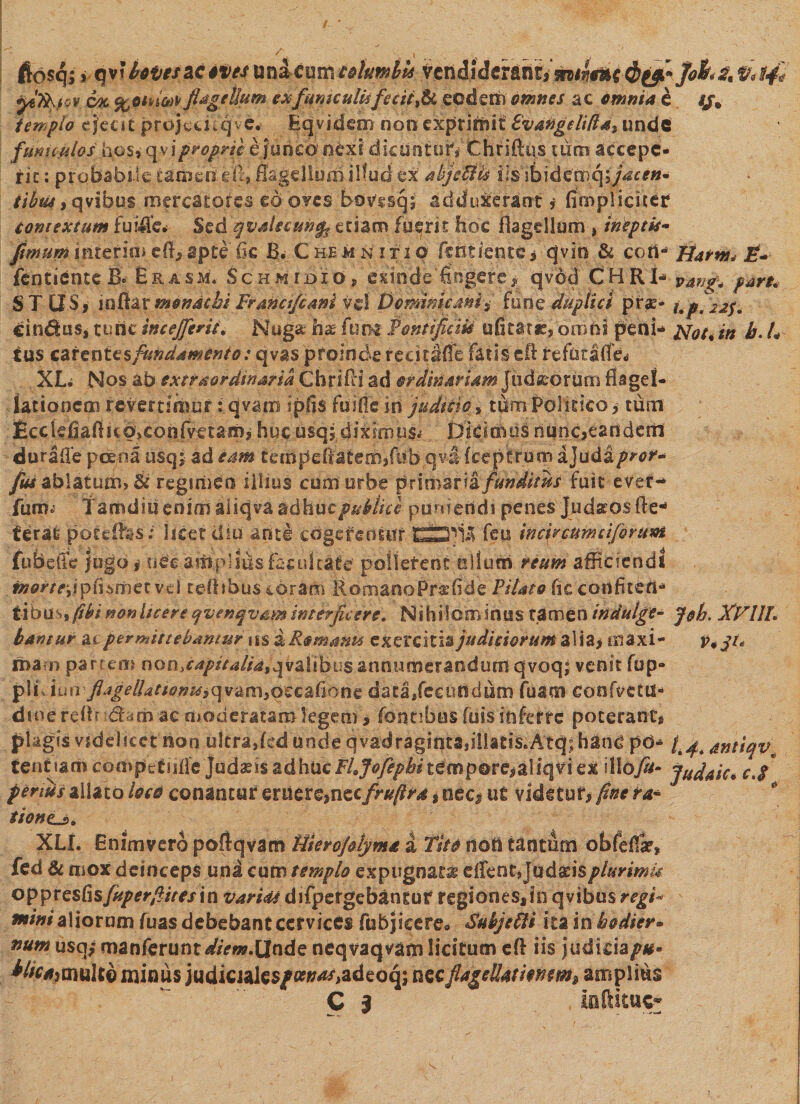 ſtosq́; , qvi boves ac oves unà cum columbis vendiderant, Joh. 2. v. 14.
flagellum ex funiculis fecit, & eodem omnes ac omnia è 15.
templo ejecit projecitqve. Eqvidem non exprimit Evangeliſta, unde
funiculos hos, qvi propriè è junco nexi dicuntur, Chriſtus tùm accepe-
rit: probabile tamen eſt, flagellum illud ex abjectis iis ibidemq́; jacen-
tibus, qvibus mercatores eò oves bovesq́; adduxerant, ſimpliciter
contextum fuiſſe. Sed qvalecunq́; etiam fuerit hoc flagellum, ineptis-
ſimum interim eſt, aptè ſic B. CHEMNITIO ſentiente, qvin & con- Harm. E-
ſentiente B. ERASM. SCHMIDIO, exinde fingere, qvòd CHRI- vang. part.
STUS, inſtar monachi Franciſcani vel Dominicani, fune duplici præ- 1. p. 225.
cinctus, tunc inceſſerit. Nugæ hæ ſunt Pontificiis uſitatæ, omni peni- Not. in h. l.
tus carentes fundamento: qvas proinde recitáſſe ſatis eſt refutáſſe.
XL. Nos ab extraordinariâ Chriſti ad ordinariam Judæorum flagel-
lationem revertimur: qvam ipſis fuiſſe in judicio, tùm Politico, tùm
Eccleſiaſtico, conſvetam, huc usq́; diximus. Dicimus nunc, eandem
duráſſe pœnâ usq́; ad eam tempeſtatem, ſub qvâ ſceptrum à Judâ pror-
ſus ablatum, & regimen illius cum urbe primariâ funditùs fuit ever-
ſum. Tamdiu enim aliqva adhuc publicè puniendi penes Judæos ſte-
terat poteſtas: licet diu antè cogerentur ſeu incircumciſorum
ſubeſſe jugo, nec ampliùs facultate pollerent ullum reum afficiendi
morte; ipſismet vel teſtibus coram Romano Præſide Pilato ſic confiten-
tibus, ſibi non licere qvenqvam interficere. Nihilominus tamen indulge- Joh. XVIII.
bantur ac permittebantur iis à Romanis exercitia judiciorum alia, maxi- v. 31.
mam partem non, capitalia, qvalibus annumerandum qvoq́; venit ſup-
plicium flagellationis, qvam, occaſione datâ, ſecundùm ſuam conſvetu-
dine reſtrictam ac moderatam legem, ſontibus ſuis inferre poterant,
plagis videlicet non ultra, ſed unde qvadraginta, illatis. Atq́; hanc po- l. 4. antiqv.
tentiam competiiſſe Judæis adhuc Fl. Joſephi tempore, aliqvi ex illo ſu- Judaic. c. 8
periùs allato loco conantur eruere, nec fruſtrà, nec, ut videtur, ſine ra-
tione.
XLI. Enimverò poſtqvam Hieroſolymæ à Tito non tantùm obſeſſæ,
ſed & mox deinceps unà cum templo expugnatæ eſſent, Judæis plurimis
oppreſſis ſuperſtites in varias diſpergebantur regiones, in qvibus regi-
mini aliorum ſuas debebant cervices ſubjicere. Subjecti ita in hodier-
num usq́; manſerunt diem. Unde neqvaqvam licitum eſt iis judicia pu-
blica, multò minùs judiciales pœnas, adeoq́; nec flagellationem, ampliùs
C 3 inſtitue-